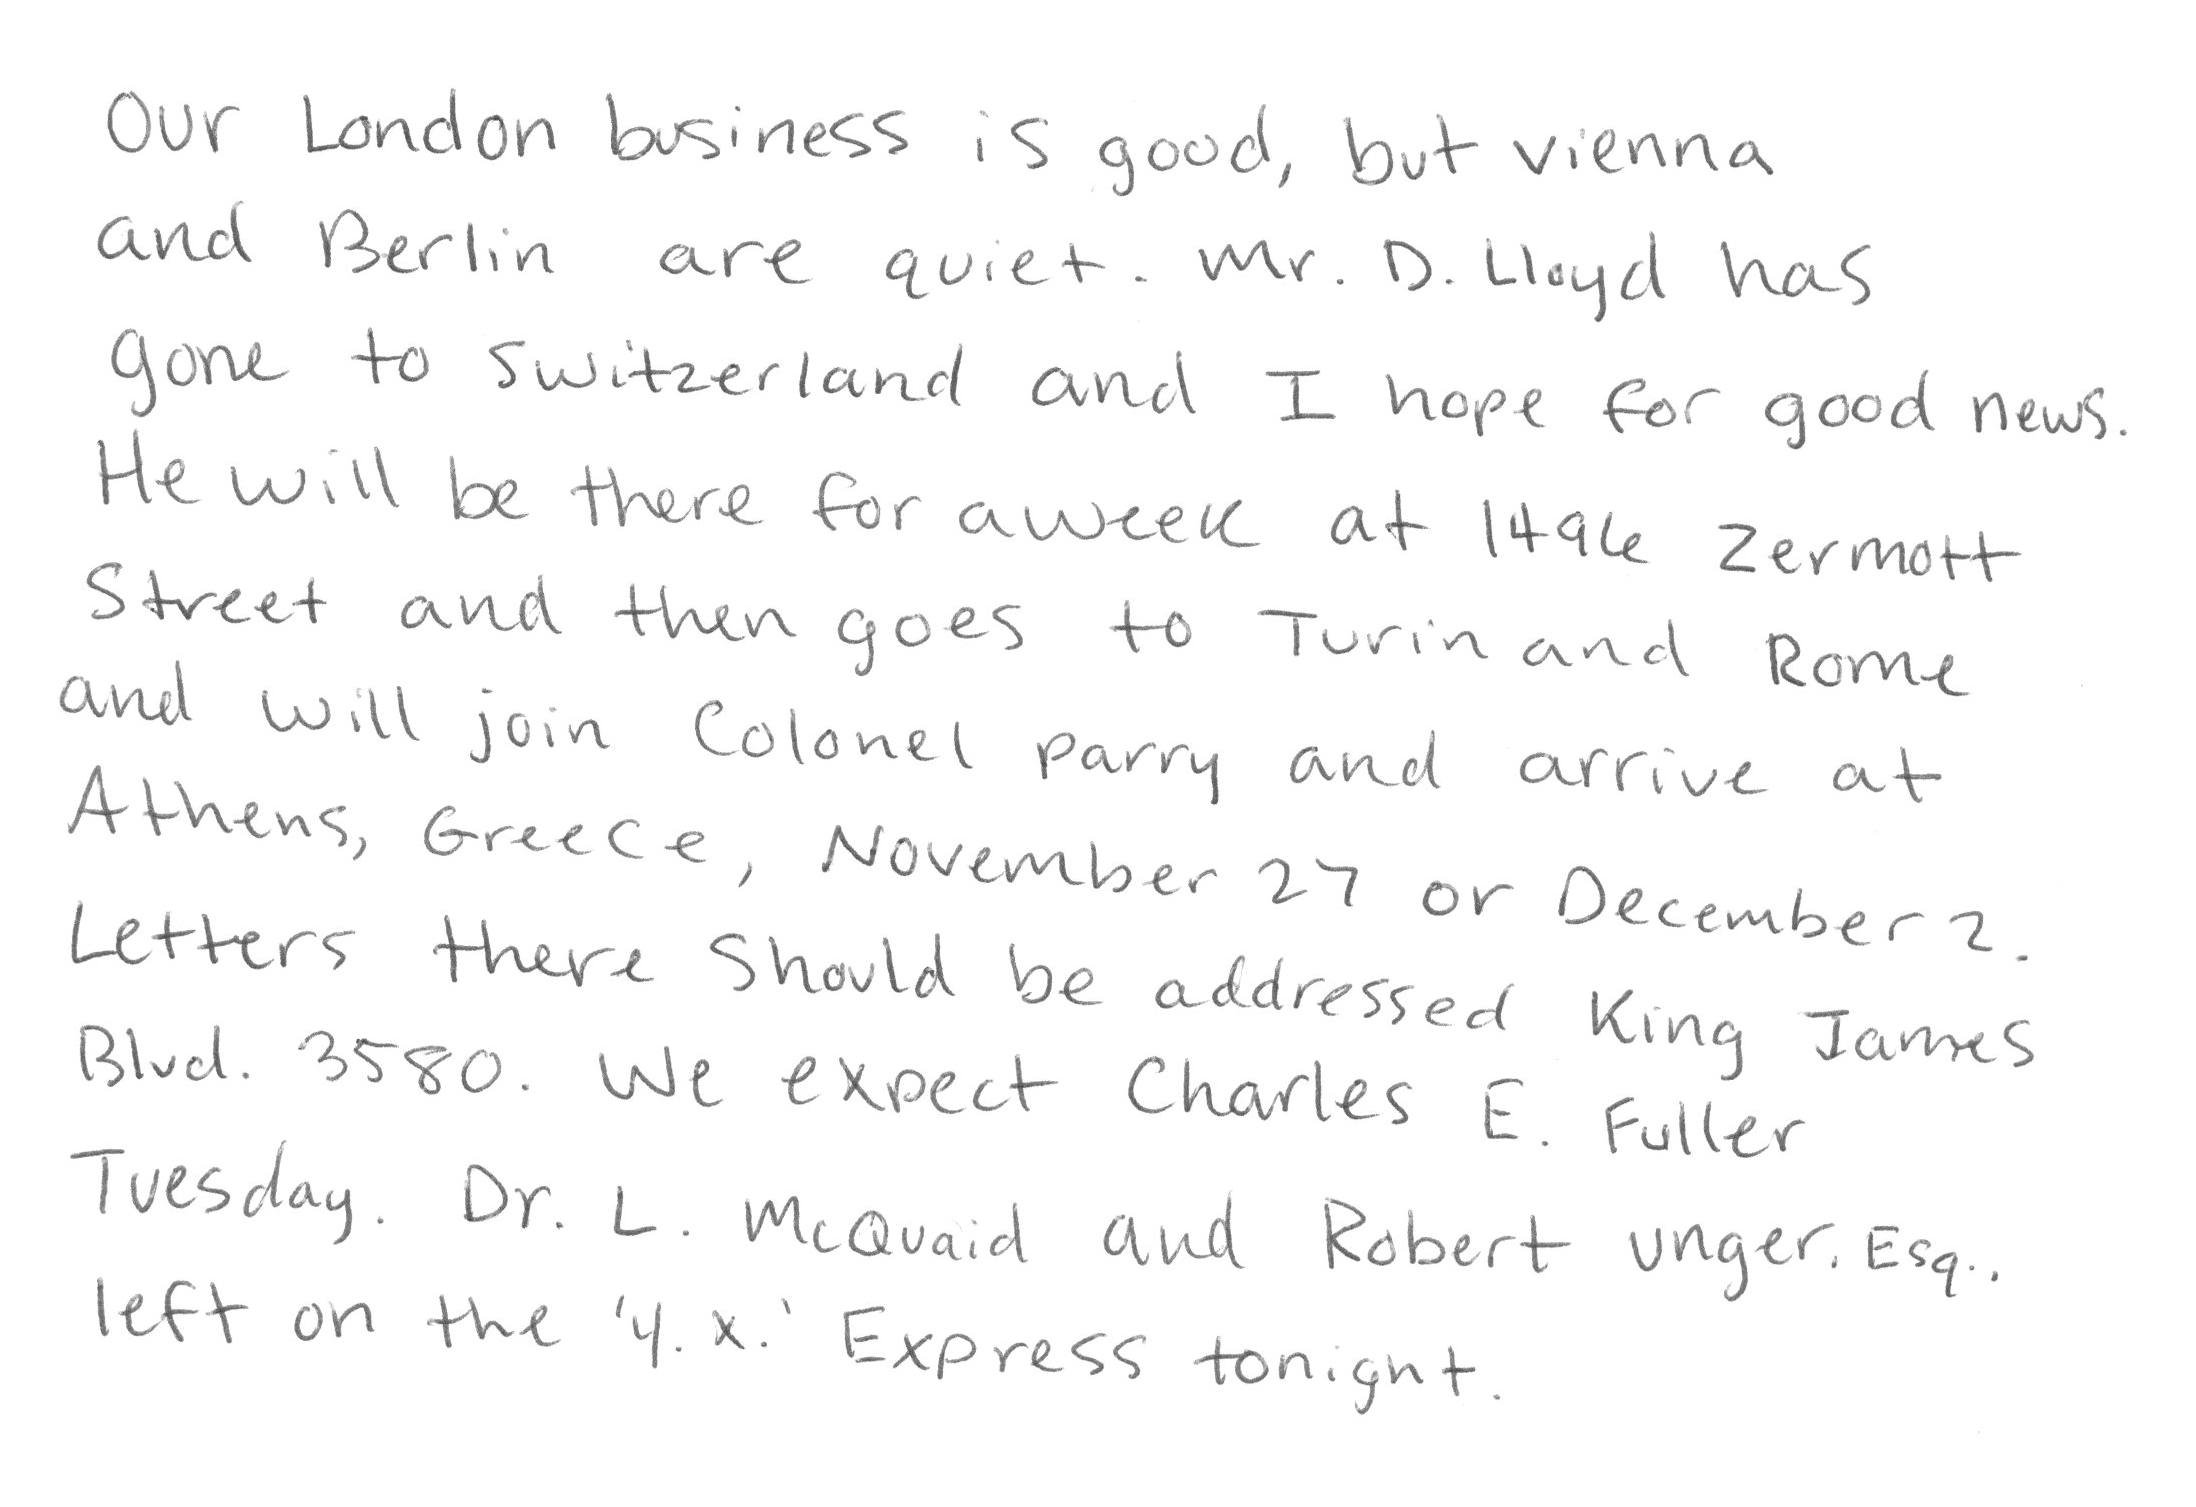 Our London business is good, but vienna
and Berlin are quiet. Mr. D. Lloyd has
gone to Switzerland and I hope for good news.
He will be there for a week at 1496 Zermott
Street and then goes to Turin and Rome
and will join Colonel Parry and arrive at
Athens, Greece, November 27 or December 2.
Letters there Should be addressed King James
Blvd. 3580. We expect Charles E. Fuller
Tuesday. Dr. L. McQuaid and Robert Unger. Esq..
left on the 'Y. X.' Express tonight.